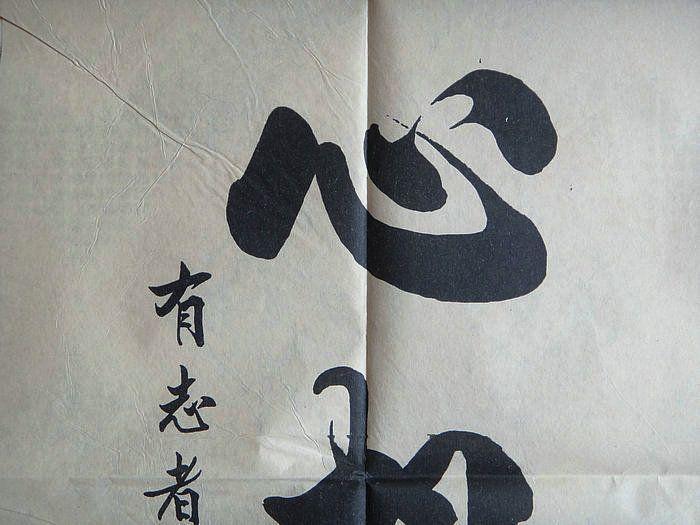 心
有志者